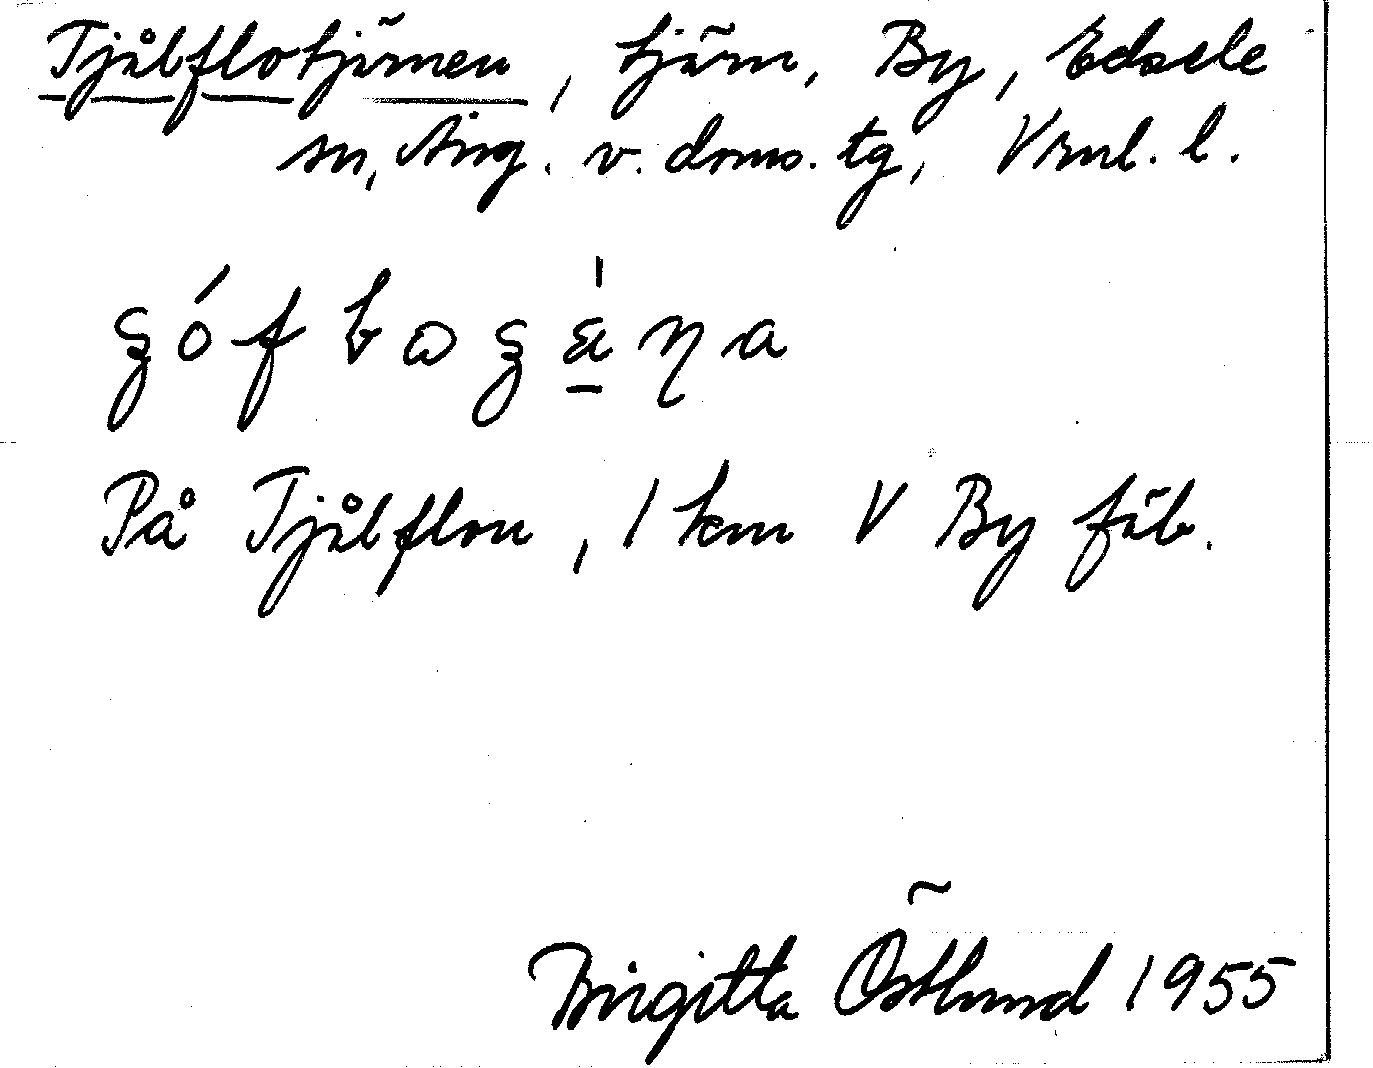 Tjålflotjärnen, tjärn, By, Edsele
sn, Ång. v. dms. tg, Vrnl. l.
På Tjålflon, 1 km V By fäb.
Birgitta Östlund 1955